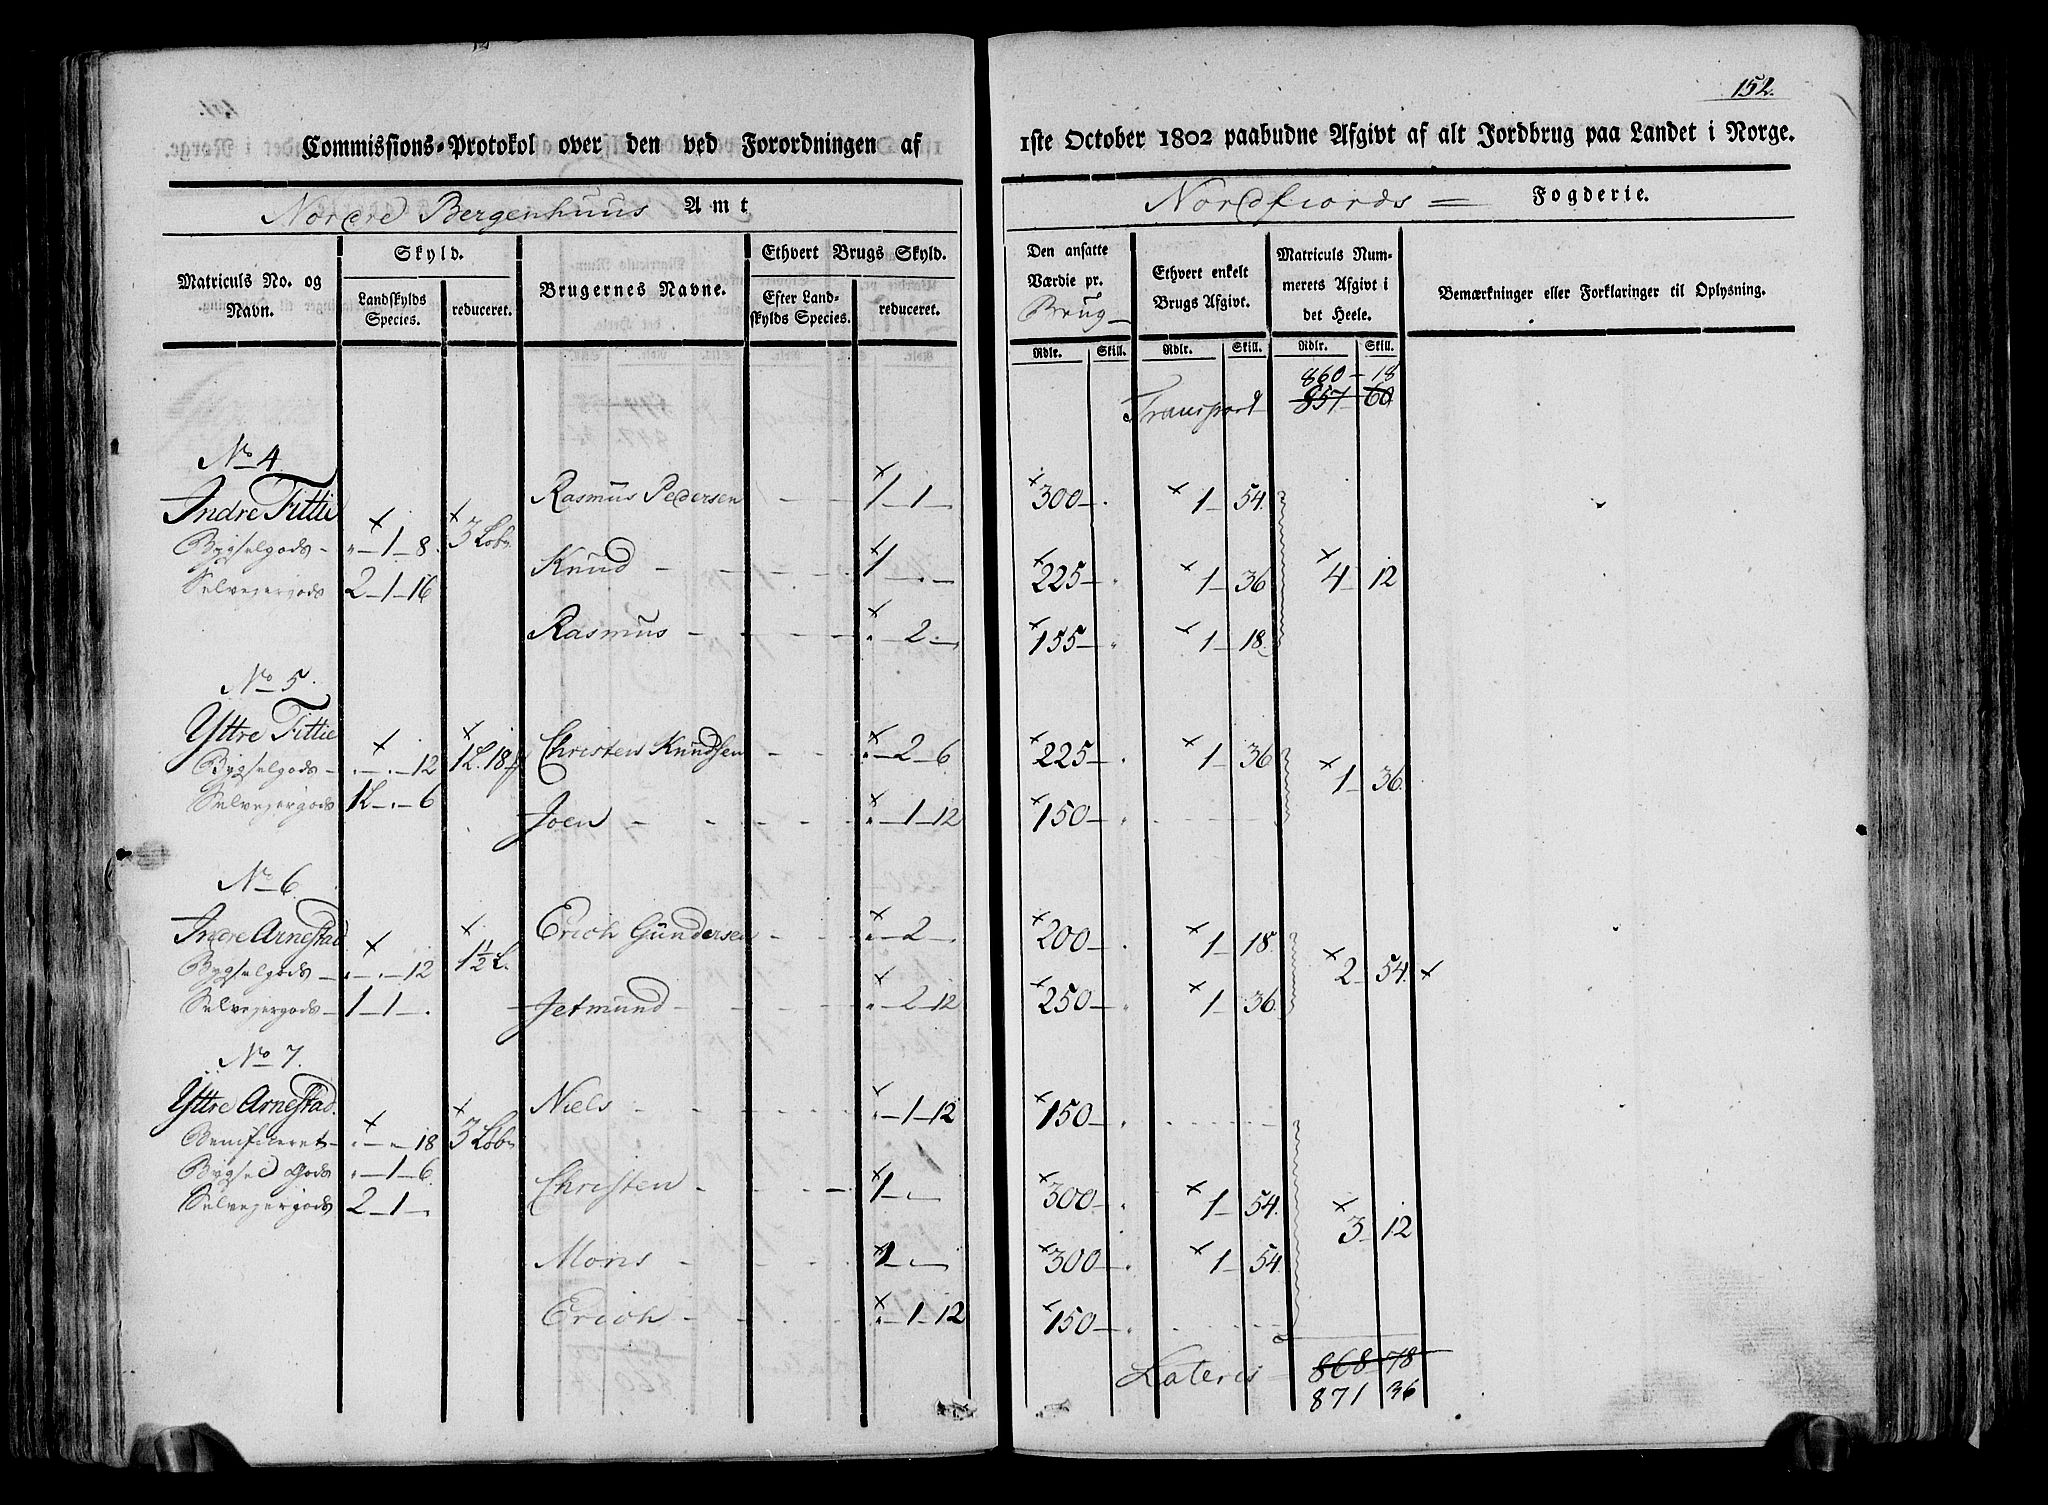 152.
Commissions-Protokol over den ved Forordningen af 1ste October 1802 paabudne Afgivt af alt Jordbrug paa Landet i Norge.
Nordre Bergenhuus Amt
Nordfiords = Fogderie.
Matriculs No. og Navn.
Skyld.
Landskylds Species.
reduceret.
Brugernes Navne.
Ethvert Brugs Skyld.
Efter Landskylds Species.
reduceret.
Den ansatte Værdie pr. Brug
Ethvert enkelt Brugs Afgivt.
Matriculs Nummerets Afgivt i det Heele.
Bemærkninger eller Forklaringer til Oplysning.
Rdlr. Skill. Rdlr. Skill. Rdlr. Skill.
860 - 18
Transport 857 60
No 4
Indre Fittie
Rasmus Pedersen - - × 1 - 1 - × 300 - . × 1 - 54.
Bygselgods - " - 1 - 8. × 3 Lob.
Knud - - - - × 1 - . - × 225 - " × 1 - 36 × 4 - 12
Selveyergods 2 - 1 - 16
Rasmus - - - - × " - 2 - . × 155 - " × 1 - 18.
No 5.
Yttre Fittie
Christen Knudsen - - × " - 2 - 6 × 225 - . × 1 - 36
Bygselgods - . - . - 12 × 1 L. 18 × 1 - 36.
Selveyergods 1 L - . - 6
Joen - - - - × " - 1 - 12 × 150 - "
No 6.
Indre Arnestad
Erich Gundersen - - × " - 2 - . × 200 - . × 1 - 18.
Bygselgods - . - . - 12 × 1½ L. × 2 - 54. ×
Selveyergods - 1 - 1 - .
Jetmund - - - - × " - 2 - 12 × 250 - " × 1 - 36.
No 7.
Yttre Arnestad.
Niels - - - - × " - 1 - 12 × 150 - .
Benificeret - " - " - 18 × 3 Lob.
Bygsel Gods " - 1 - 6.
Christen - - - - × 1 - . - × 300 - . × 1 - 54.
Selveyergods 2 - 1 - .
× 3 - 12
Mons - - - - × 1 - . - × 300 - . × 1 - 54.
Erich - - - - × " - 1 - 12 × 150 - "
Lateris - 868 - 78
871 36